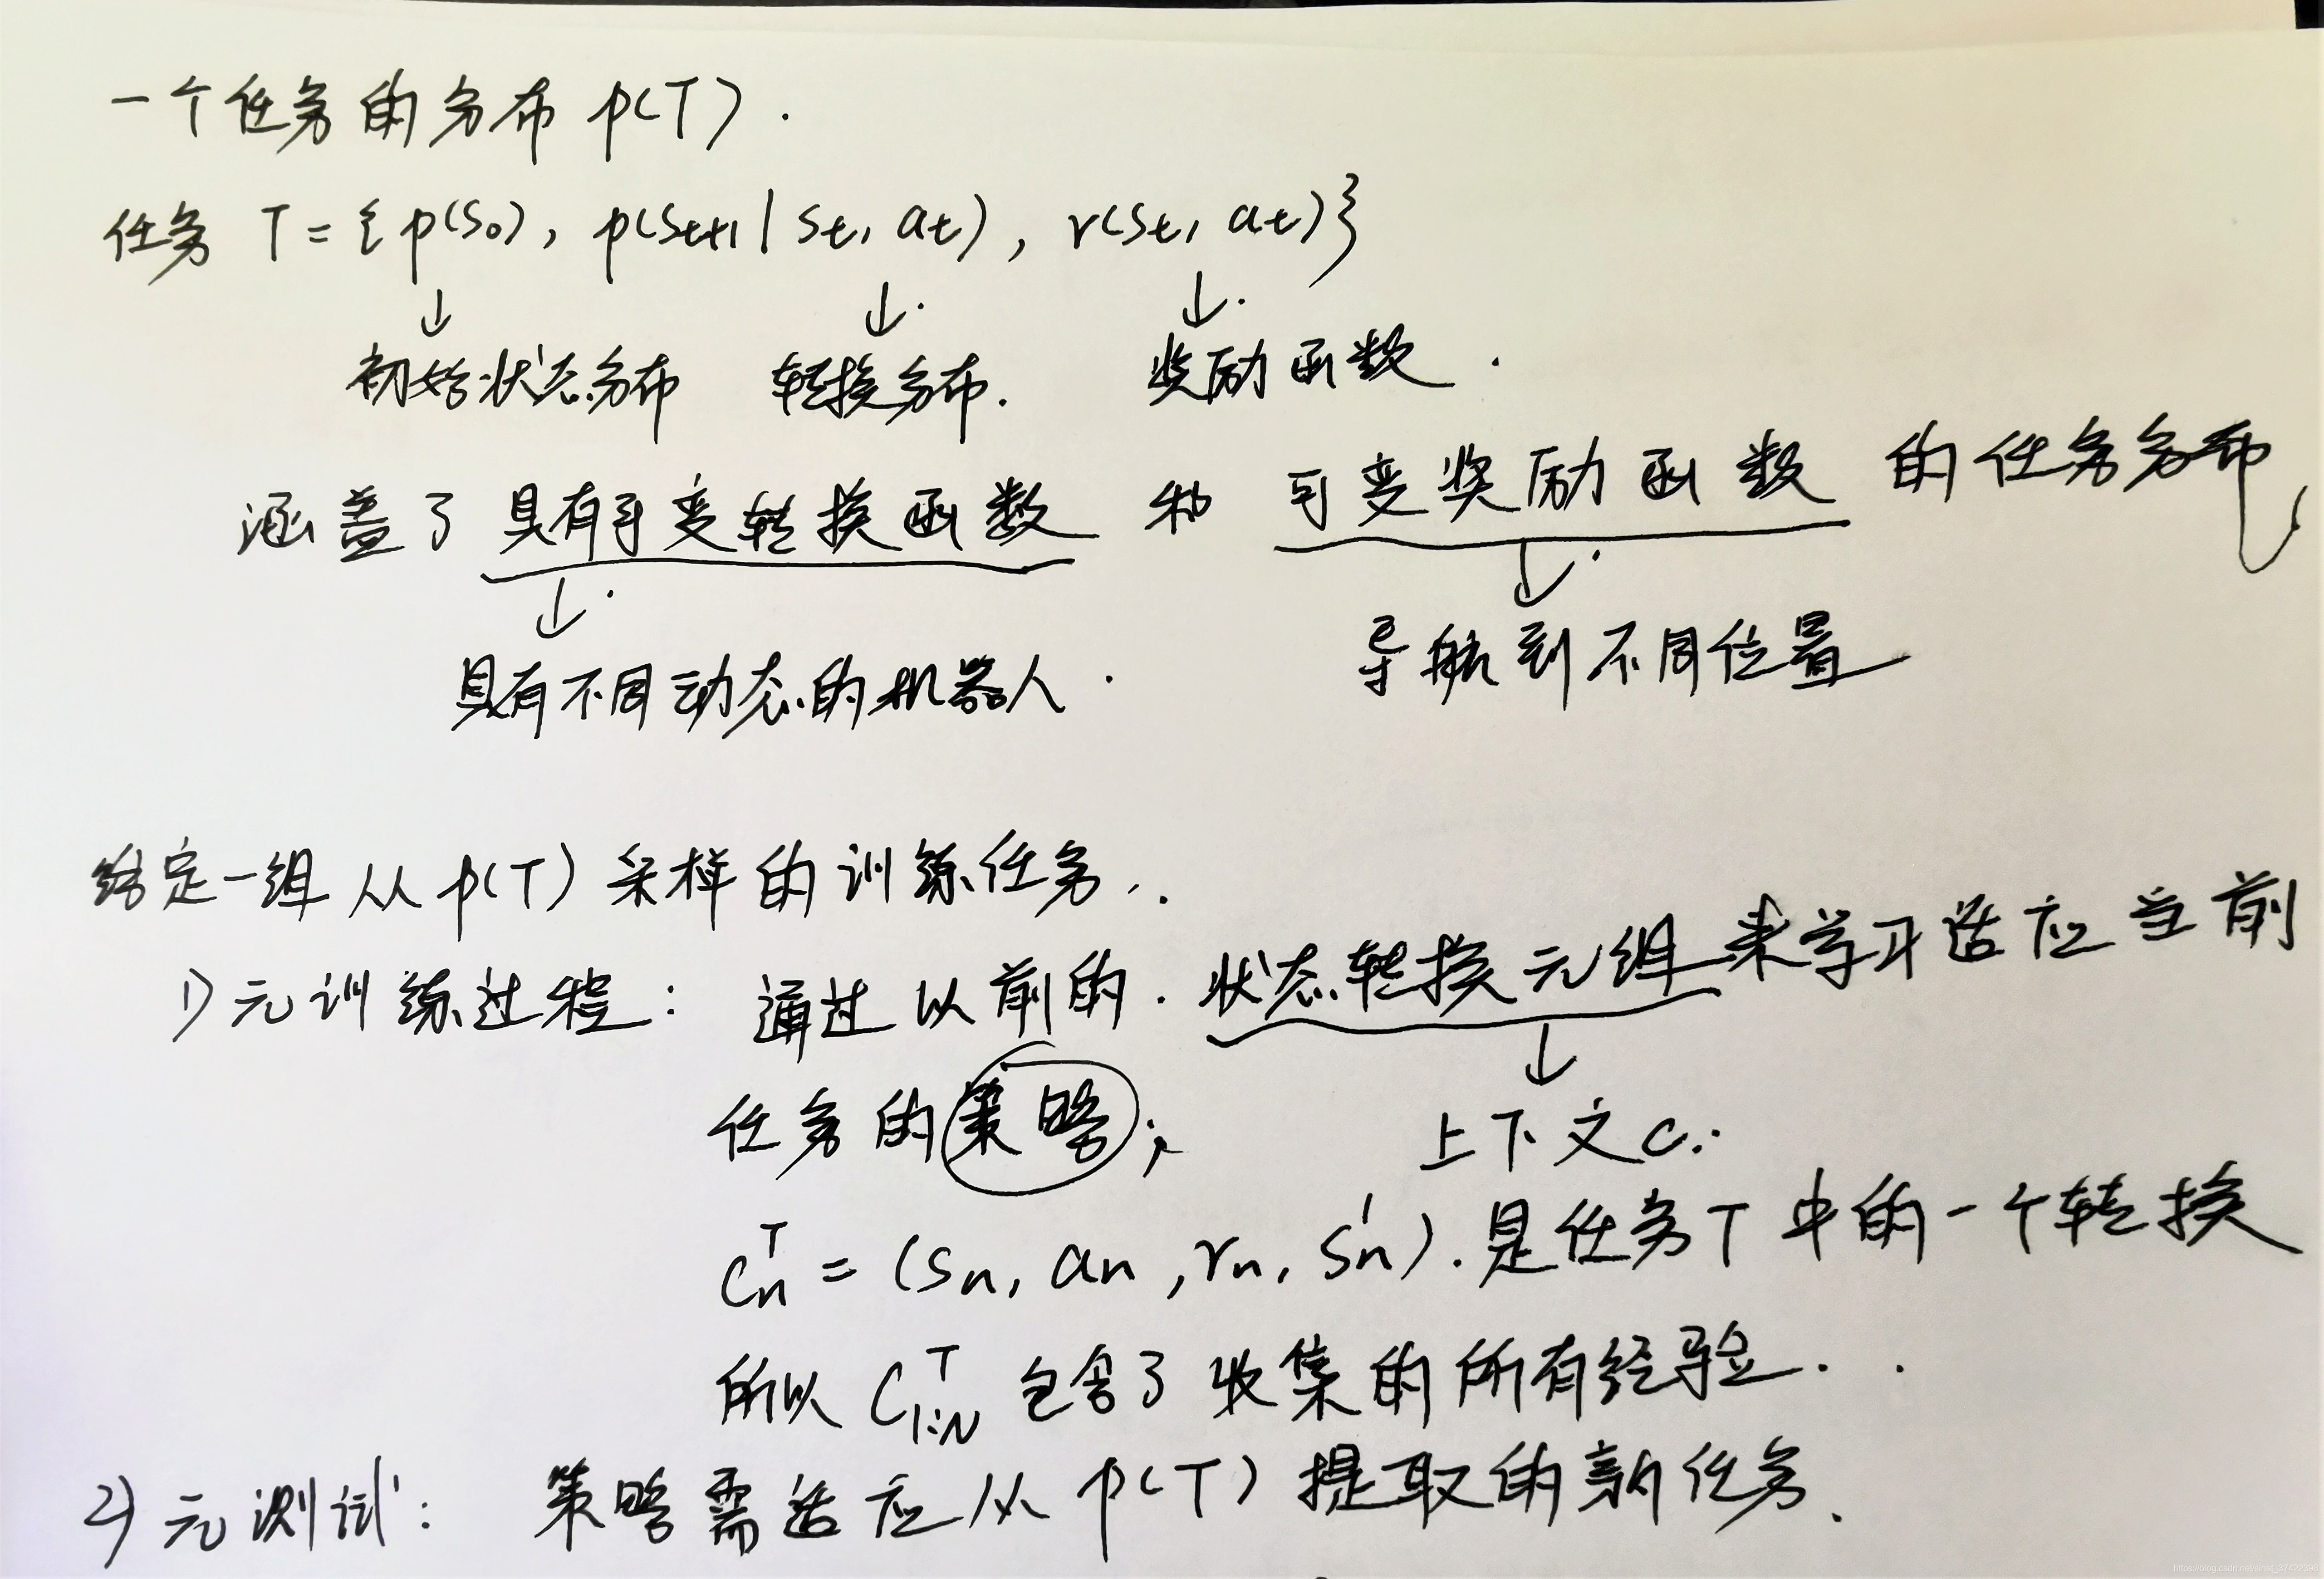 一个任务的分布 p(T).
任务 T = {p(s₀), p(sₜ₊₁|sₜ, aₜ), r(sₜ, aₜ)}
↓ ↓. ↓.
初始状态分布 转换分布. 奖励函数.
涵盖了具有可变转换函数 和 可变奖励函数 的任务分布
↓. ↓.
具有不同动态的机器人. 导航到不同位置
给定一组从 p(T) 采样的训练任务..
1) 元训练过程: 通过以前的.状态转换元组来学习适应当前
任务的策略; ↓
上下文c.
cₙᵀ = (sₙ, aₙ, rₙ, sₙ'). 是任务T中的一个转换
所以 C₁:Nᵀ 包含了收集的所有经验..
2) 元测试: 策略需适应从 p(T) 提取的新任务.